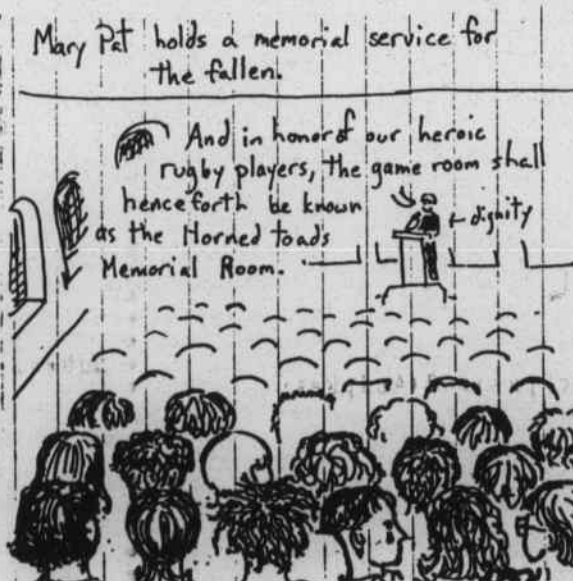 Mary Pat holds a memorial service for
the fallen.
And in honor of our heroic
rugby players, the game room shall
henceforth be known
as the Horned toads
Memorial Room.
←dignity